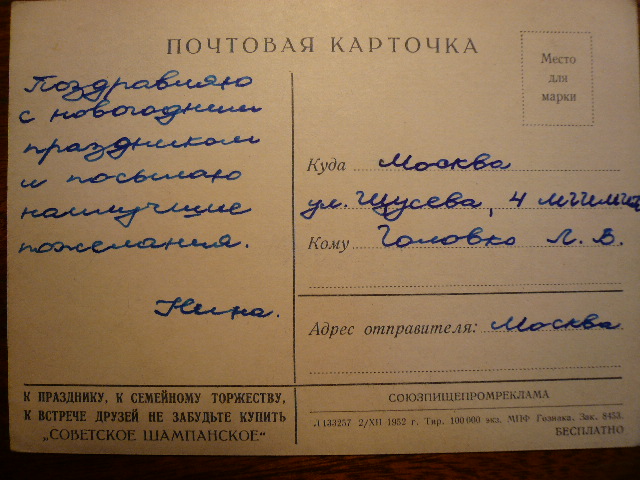 ПОЧТОВАЯ КАРТОЧКА
Место
для
марки
Поздравляю
с новогодним
праздником
и посылаю
наилучшие
пожелания.
Нина.
Куда Москва
ул. Щусева, 4
Кому Головко Л. В.
Адрес отправителя: Москва
К ПРАЗДНИКУ, К СЕМЕЙНОМУ ТОРЖЕСТВУ,
К ВСТРЕЧЕ ДРУЗЕЙ НЕ ЗАБУДЬТЕ КУПИТЬ
„СОВЕТСКОЕ ШАМПАНСКОЕ“
СОЮЗПИЩЕПРОМРЕКЛАМА
Л133257 2/XII 1952 г. Тир. 100 000 экз. МПФ Гознака. Зак. 8453.
БЕСПЛАТНО